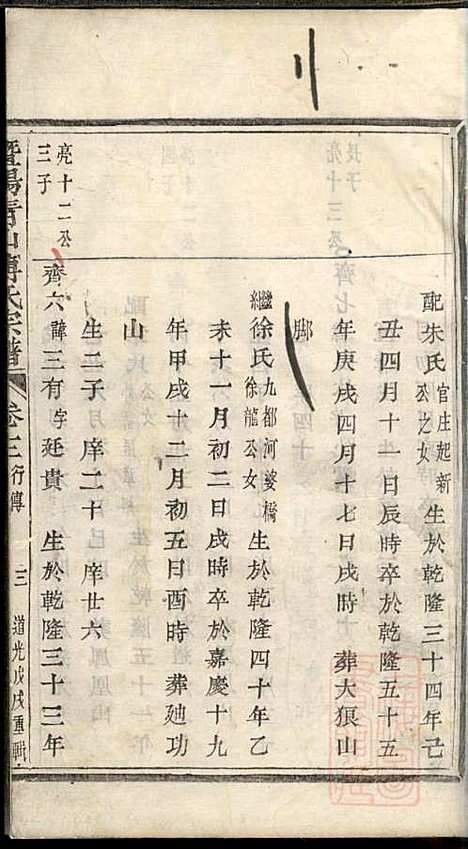 配朱氏官庄起新公之女生於乾隆三十四年己
丑四月十一日辰時卒於乾隆五十五
年庚戌四月十七日戌時葬大狼山
脚
繼徐氏九都河婆橋徐龍公女生於乾隆四十年乙
未十一月初二日戌時卒於嘉慶十九
年甲戌十二月初五日酉時葬廸功
山
生二子庠二十庠廿六
齊六諱三有字廷貴生於乾隆三十三年
亮十二公
三子
暨陽青山傅氏宗譜卷三行傳三道光戊戌重輯